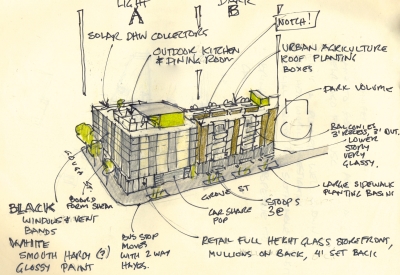 LIGHT
A
DARK
B
NOTCH!
SOLAR DHW COLLECTORS
OUTDOOR KITCHEN
& DINING ROOM
URBAN AGRICULTURE
ROOF PLANTING
BOXES
DARK VOLUME
BALCONIES
3' RECESS, 3' OUT.
LOWER
STORY
VERY
GLASSY.
LARGE SIDEWALK
PLANTING BASINS
GOUGH
ST
GROVE ST
STOOPS
3@
CAR SHARE
POP
BOARD
FORM SHEAR
BLACK
WINDOWS & VENT
BANDS
WHITE
SMOOTH HARDY (?)
GLOSSY PAINT
BUS STOP
MOVES
WITH 2 WAY
HAYES.
RETAIL FULL HEIGHT GLASS STOREFRONT,
MULLIONS ON BACK, 4' SET BACK